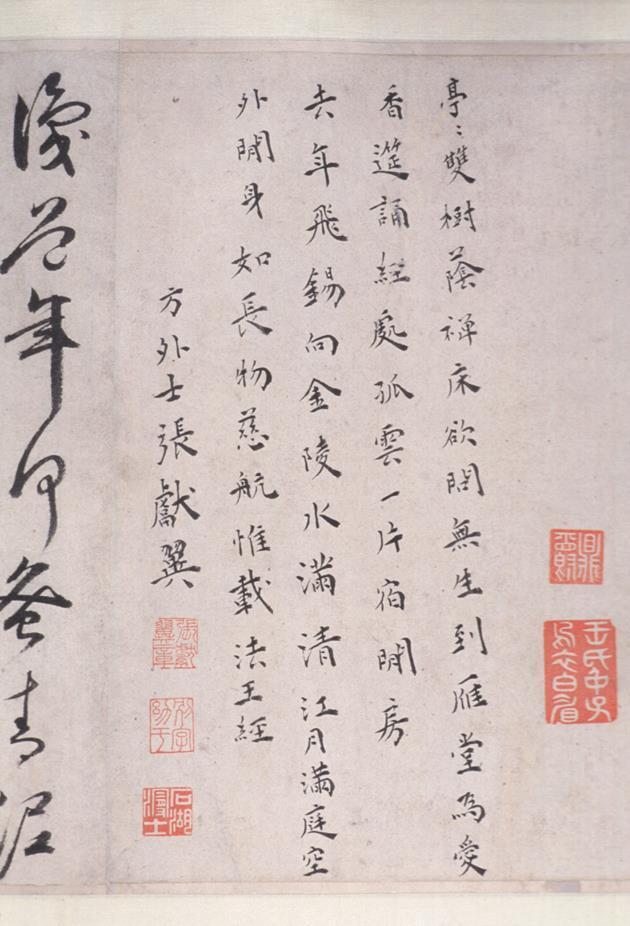 亭〻雙樹蔭禪床欲問無生到雁堂為愛
香筵誦經處孤雲一片宿閒房
去年飛錫向金陵水滿清江月滿庭空
外閒身如長物慈航惟載法王經
方外士張獻翼
張獻翼章
石湖漫士